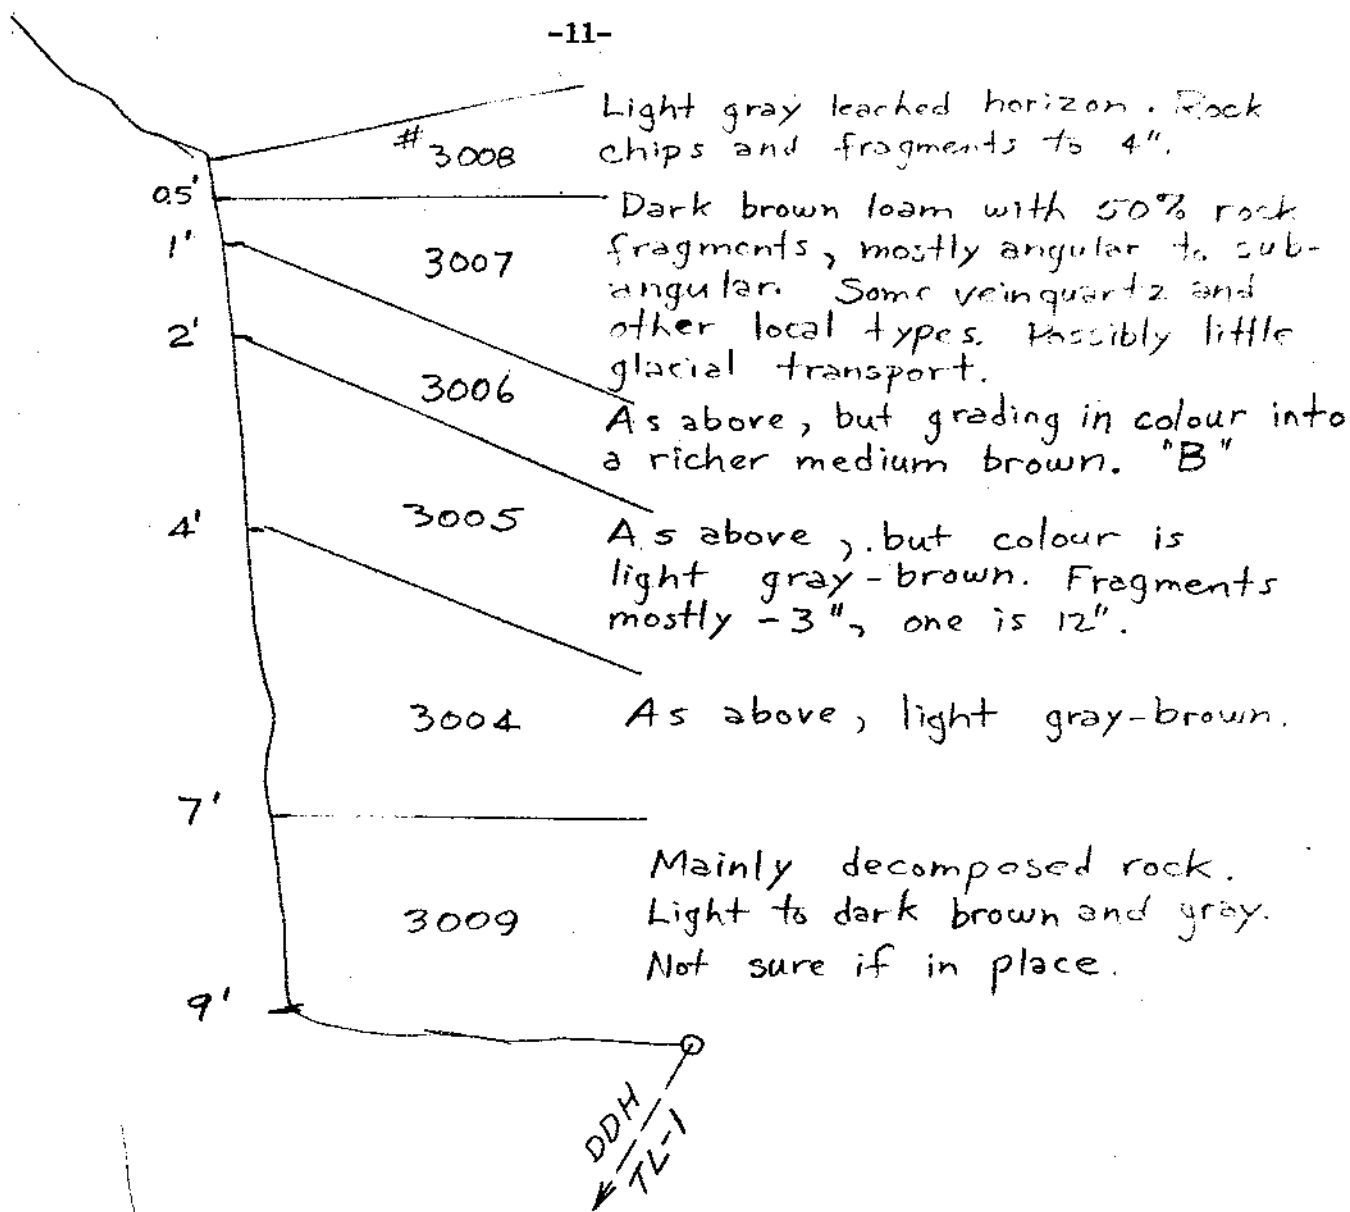 -11-
Light gray leached horizon. Rock
# 3008 chips and fragments to 4".
0.5'
Dark brown loam with 50% rock
1'
3007 fragments, mostly angular to sub-
angular. Some veinquartz and
2' other local types. Possibly little
3006 glacial transport.
As above, but grading in colour into
a richer medium brown. "B"
4' 3005 As above, but colour is
light gray-brown. Fragments
mostly -3", one is 12".
3004 As above, light gray-brown.
7'
Mainly decomposed rock.
3009 Light to dark brown and gray.
Not sure if in place.
9'
DDH
TL-1